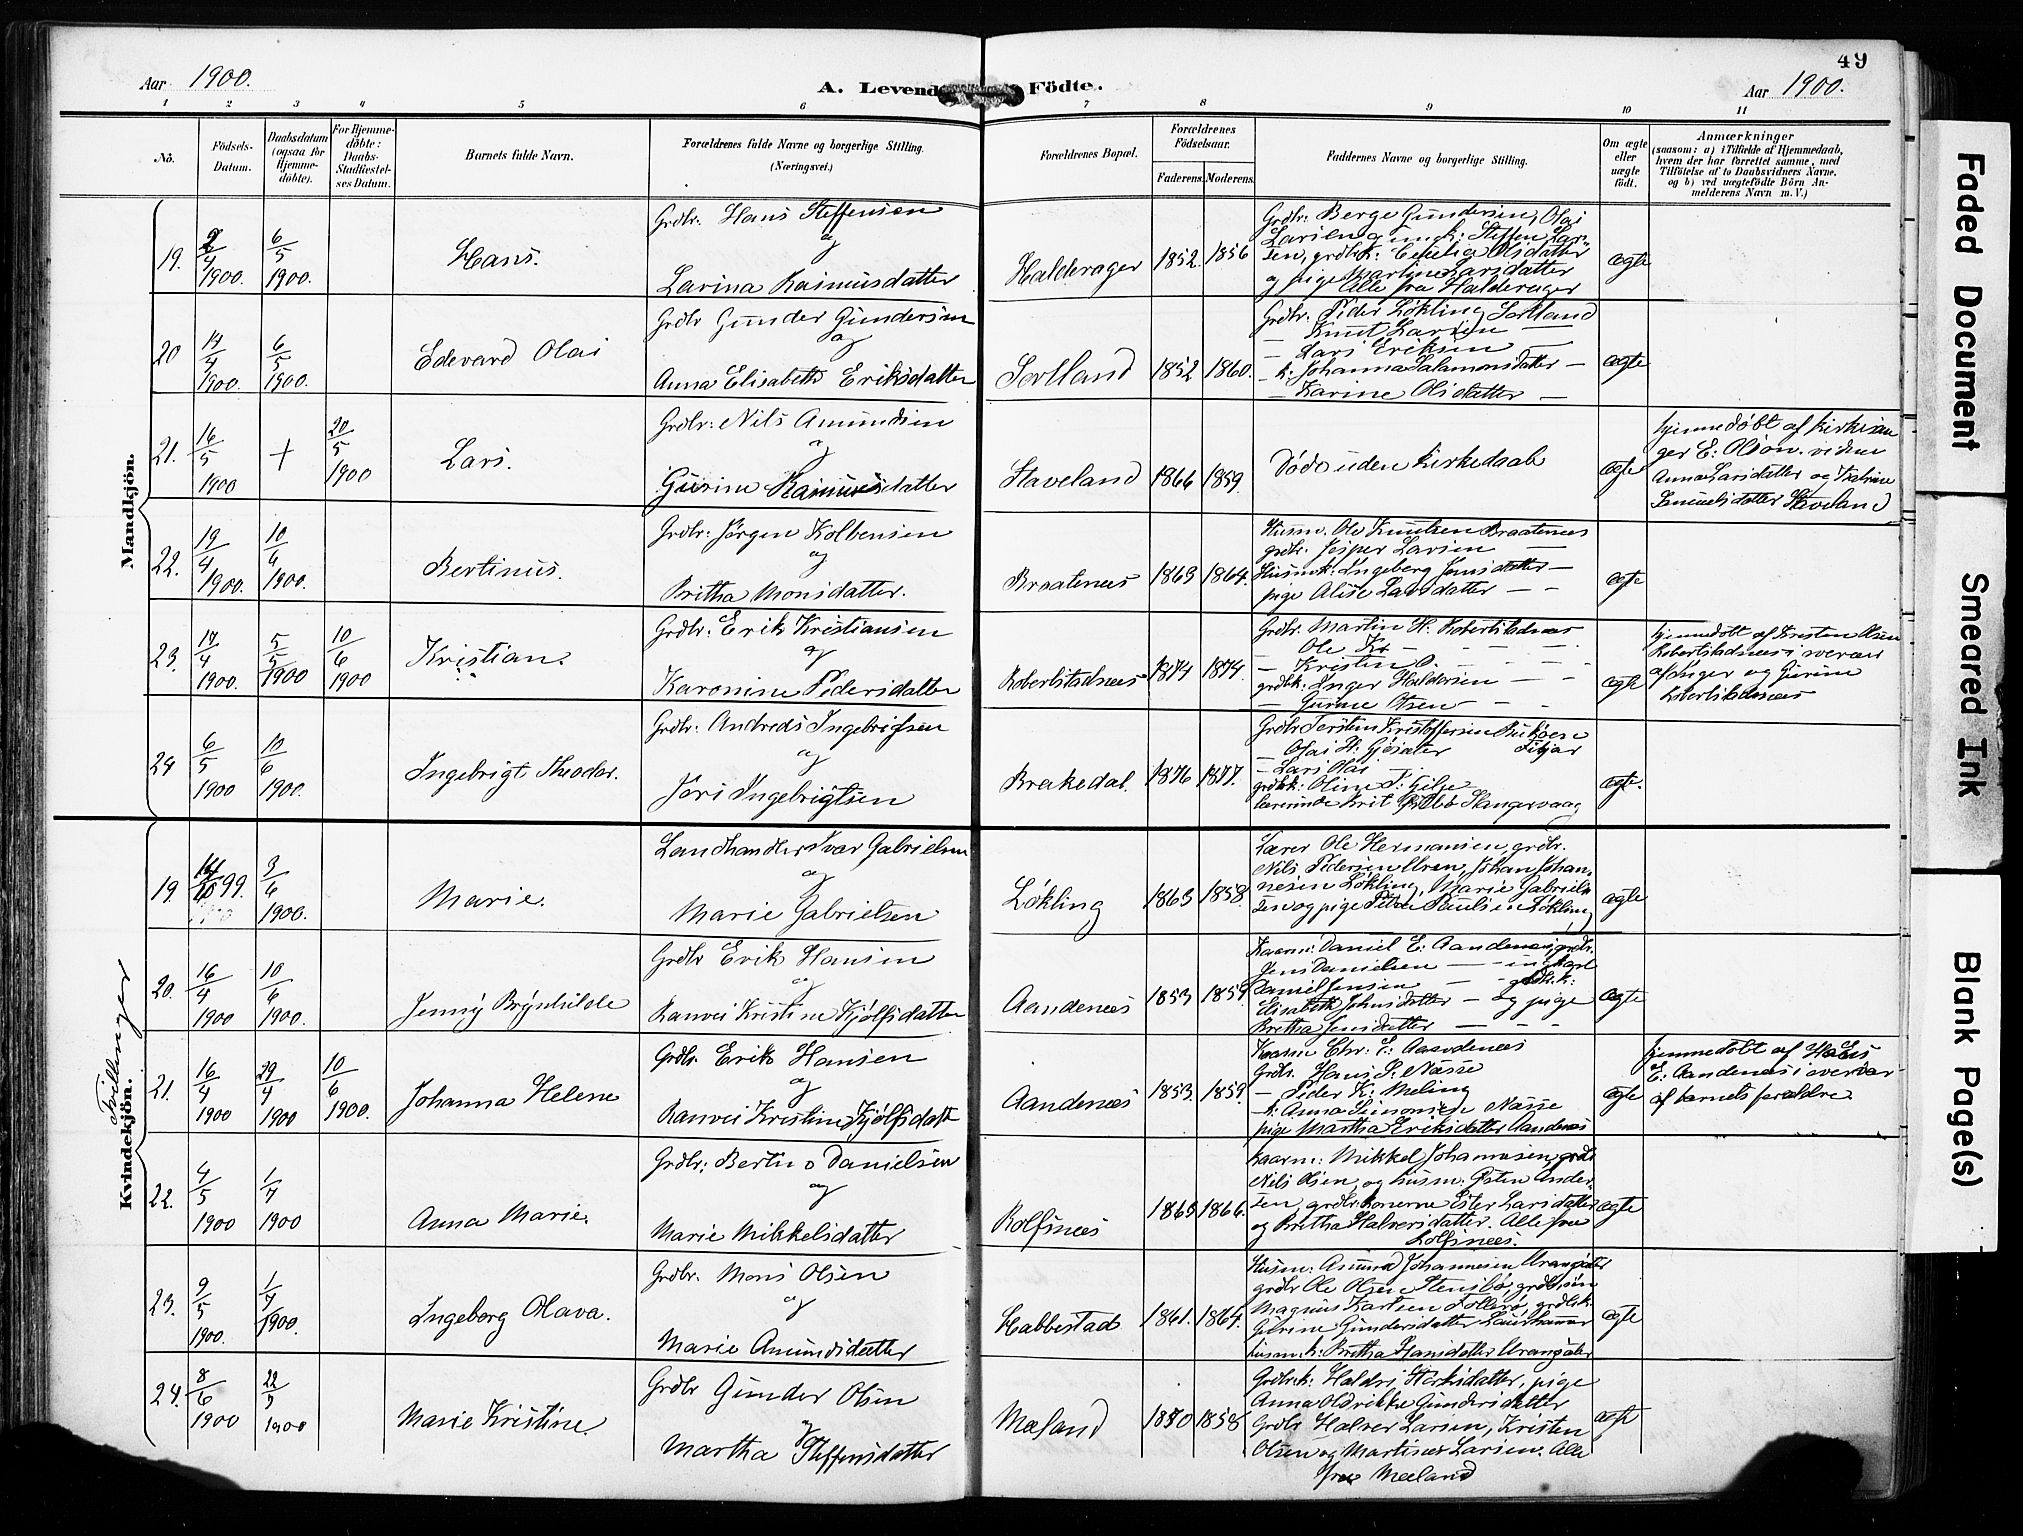 49
Aar 1900.
A. Levende Födte.
Aar 1900.
1 2 3 4 5 6 7 8 9 10 11
Nô.
Födsels-Datum.
Daabsdatum (ogsaa for Hjemme-döbte).
For Hjemme-döbte: Daabs-Stadfestel-ses Datum.
Barnets fulde Navn.
Forældrenes fulde Navne og borgerlige Stilling.
(Næringsvei.)
Forældrenes Bopæl.
Forældrenes Födselsaar.
Faderens. Moderens.
Faddernes Navne og borgerlige Stilling.
Om ægte eller uægte födt.
Anmærkninger
(saasom: a) i Tilfælde af Hjemmedaab,
hvem der har forrettet samme, med
Tilföielse af to Daabsvidners Navne.
og b) ved uægtefödte Börn An-
melderens Navn m. V.)
Mandkjön.
19. 2/4 1900. 6/5 1900. Hans. Grdbr. Hans Steffensen og Larina Rasmusdatter Halderager 1852. 1856 ægte
Grdbr: Berge Gundersen, Olai
Larsen gmk: Steffen Lar-
sen, grdbrk: Cecilia Olsdatter
og pige Martine Larsdatter
Alle fra Halderager
20 14/4 1900. 6/5 1900. Edevard Olai Grdbr Gunder Gundersen og Anna Elisabeth Eriksdatter Sortland 1852 1860. ægte
Grdbr. Peder Løkling Sortland
— Knut Larsen —
— Lars Eriksen —
— k: Johanna Salamonsdatter —
— Karine Olsdatter —
21. 16/5 1900 + 20/5 1900 Lars. Grdbr: Nils Amundsen og Gurine Rasmusdatter Staveland 1866 1859. Døde uden kirkedaab ægte
hjemmedøbt af kirkesan
ger E. Olson. vidner
Anna Larsdatter og Katrine
Samuelsdatter Staveland
22. 19/4 1900. 10/6 1900. Bertinus. Grdbr: Jörgen Kolbensen og Britha Monsdatter. Braatenæs 1863 1864. ægte
Husm. Ole Knutsen Braatenæs
grdbr. Jesper Larsen —
Husmk: Ingeborg Jensdatter —
pige Alise Larsdatter — —
23. 17/4 1900. 5/5 1900 10/6 1900 Kristian. Grdbr: Erik Kristiansen og Karonine Pedersdatter Robertstadnæs 1874 1874. ægte
Grdbr. Martin H: Robertstadnæs
— Ole Kr — — — —
— Kristen O. — — — —
grdbrk: Inger Haldorsen — —
— Gurine Olsen — —
hjemmedøbt af Kristen Olsen
Robertstadnæs i overvær
af Inger og Gurine
Robertstadnæs
24 6/5 1900 10/6 1900. Ingebrigt Theodor. Grdbr: Andreas Ingebrigtsen og Jori Ingebrigtsen Brakedal. 1876 1877. ægte.
Grdbr Torsten Kristoffersen
— Olai H: Fitjar
— Lars Olai —
grdbrk: Oline T: Gilje
lærerinde Slangervaag
Kvindekjön.
Tvillinger
19. 14/10 99. 3/6 1900. Marie. Landhandler Ivar Gabrielsen og Marie Gabrielsen Løkling 1863 1858. ægte
Lærer Ole Hermansen, grdbr.
Nils Pedersen Uren, Johan Johan-
nesen Løkling, Marie Gabriel-
sen og pige Petra Paulsen Løkling
20. 16/4 1900 10/6 1900. Jenny Brynhilde Grdbr Erik Hansen og Ranvei Kristine Kjølfsdatter Aandenæs 1853 1859. ægte
Kaarm: Daniel E: Aandenæs, grdbr.
Jens Danielsen — — ungkarl
Daniel Jensen — — grdbrk:
Elisabeth Johnsdatter — og pige
Bretha Jensdatter — — —
21. 16/4 1900 29/4 1900 10/6 1900. Johanna Helene Grdbr. Erik Hansen og Ranvei Kristine Kjølfsdatt Aandenæs 1853. 1859. ægte
Kaarm Chr. E: Aandenæs
Grdbr. Hans P. Næsse
— Peder K: Meling
— k: Anna Simonsen Næsse
pige Martha Eriksdatter Aandenæs
hjemmedøbt af Hans
E: Aandenæs i overvær
af barnets forældre.
22. 4/5 1900 1/7 1900 Anna Marie. Grdbr: Bertin o Danielsen og Marie Mikkelsdatter Rolfsnæs 1863 1866. ægte
Kaarm: Mikkel Johannesen, grdbr
Nils Olsen, og husm: Østen Ander-
sen, grdbr konerne Ester Larsdatter
og Bretha Halversdatter. Alle fra
Rolfsnæs.
23. 9/5 1900. 1/7 1900. Ingeborg Olava. Grdbr. Mons Olsen og Marie Amundsdatter Habbestad 1861. 1864. ægte
Husm: Amund Johannesen Urangsæter
grdbr Ole Olsen Stensbø, grdbrsøn
Magnus Karlsen Follerø, grdbrk:
Gurine Gundersdatter Laurhammer
husm.k: Bretha Hansdatter Urangsæter
24. 8/6 1900 22/7 1900 Marie Kristine. Grdbr Gunder Olsen og Martha Steffensdatter Mæland 1850 1858 ægte
Grdbrk: Haldri Størksdatter, pige
Anna Oldrikke Gundersdatter
Grdbr Halver Larsen, Kristen
Olsen og Martines Larsen. Alle
fra Mæland
Faded Document
Smeared Ink
Blank Page(s)